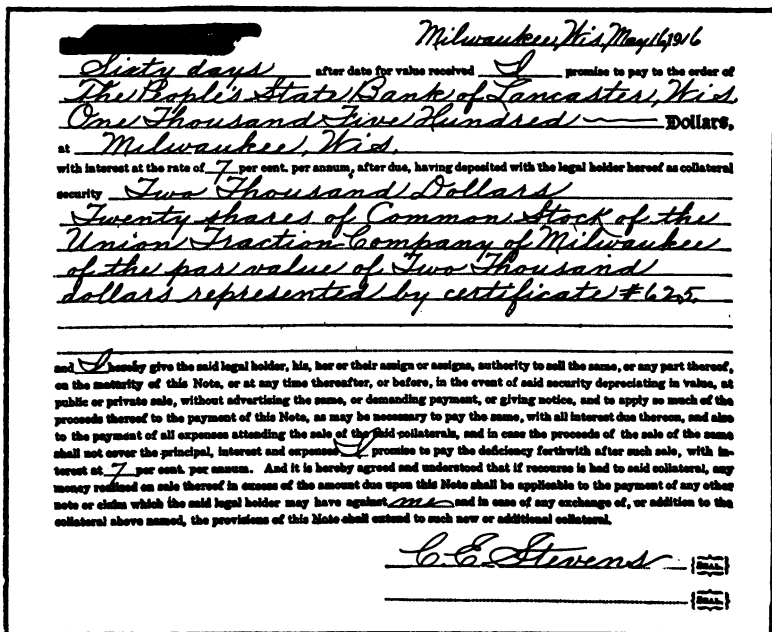 Milwaukee, Wis, May 16, 1916
Sixty days after date for value received I promise to pay to the order of
The People's State Bank of Lancaster, Wis.
One Thousand Five Hundred — Dollars,
at Milwaukee, Wis.
with interest at the rate of 7 per cent. per annum, after due, having deposited with the legal holder hereof as collateral
security Two Thousand Dollars
Twenty shares of Common Stock of the
Union Traction Company of Milwaukee
of the par value of Two Thousand
dollars represented by certificate #625.
and I hereby give the said legal holder, his, her or their assign or assigns, authority to sell the same, or any part thereof,
on the maturity of this Note, or at any time thereafter, or before, in the event of said security depreciating in value, at
public or private sale, without advertising the same, or demanding payment, or giving notice, and to apply so much of the
proceeds thereof to the payment of this Note, as may be necessary to pay the same, with all interest due thereon, and also
to the payment of all expenses attending the sale of the said collaterals, and in case the proceeds of the sale of the same
shall not cover the principal, interest and expenses I promise to pay the deficiency forthwith after such sale, with in-
terest at 7 per cent. per annum. And it is hereby agreed and understood that if recourse is had to said collateral, any
money realized on sale thereof in excess of the amount due upon this Note shall be applicable to the payment of any other
note or claim which the said legal holder may have against me and in case of any exchange of, or addition to the
collateral above named, the provisions of this Note shall extend to such new or additional collateral.
C. E. Stevens {SEAL.}
{SEAL.}